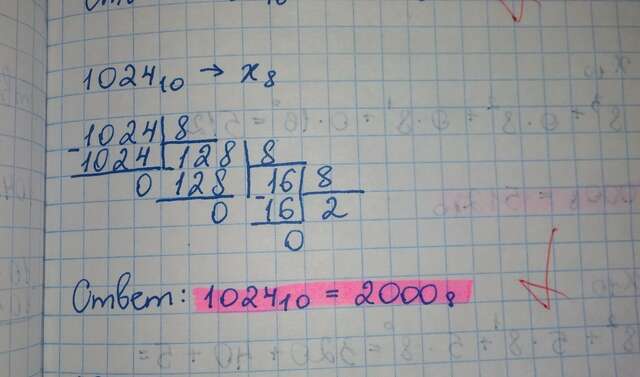 1024₁₀ → x₈
1024 | 8
1024 | 128 | 8
0 128 | 16 | 8
0 16 | 2
0
Ответ: 1024₁₀ = 2000₈